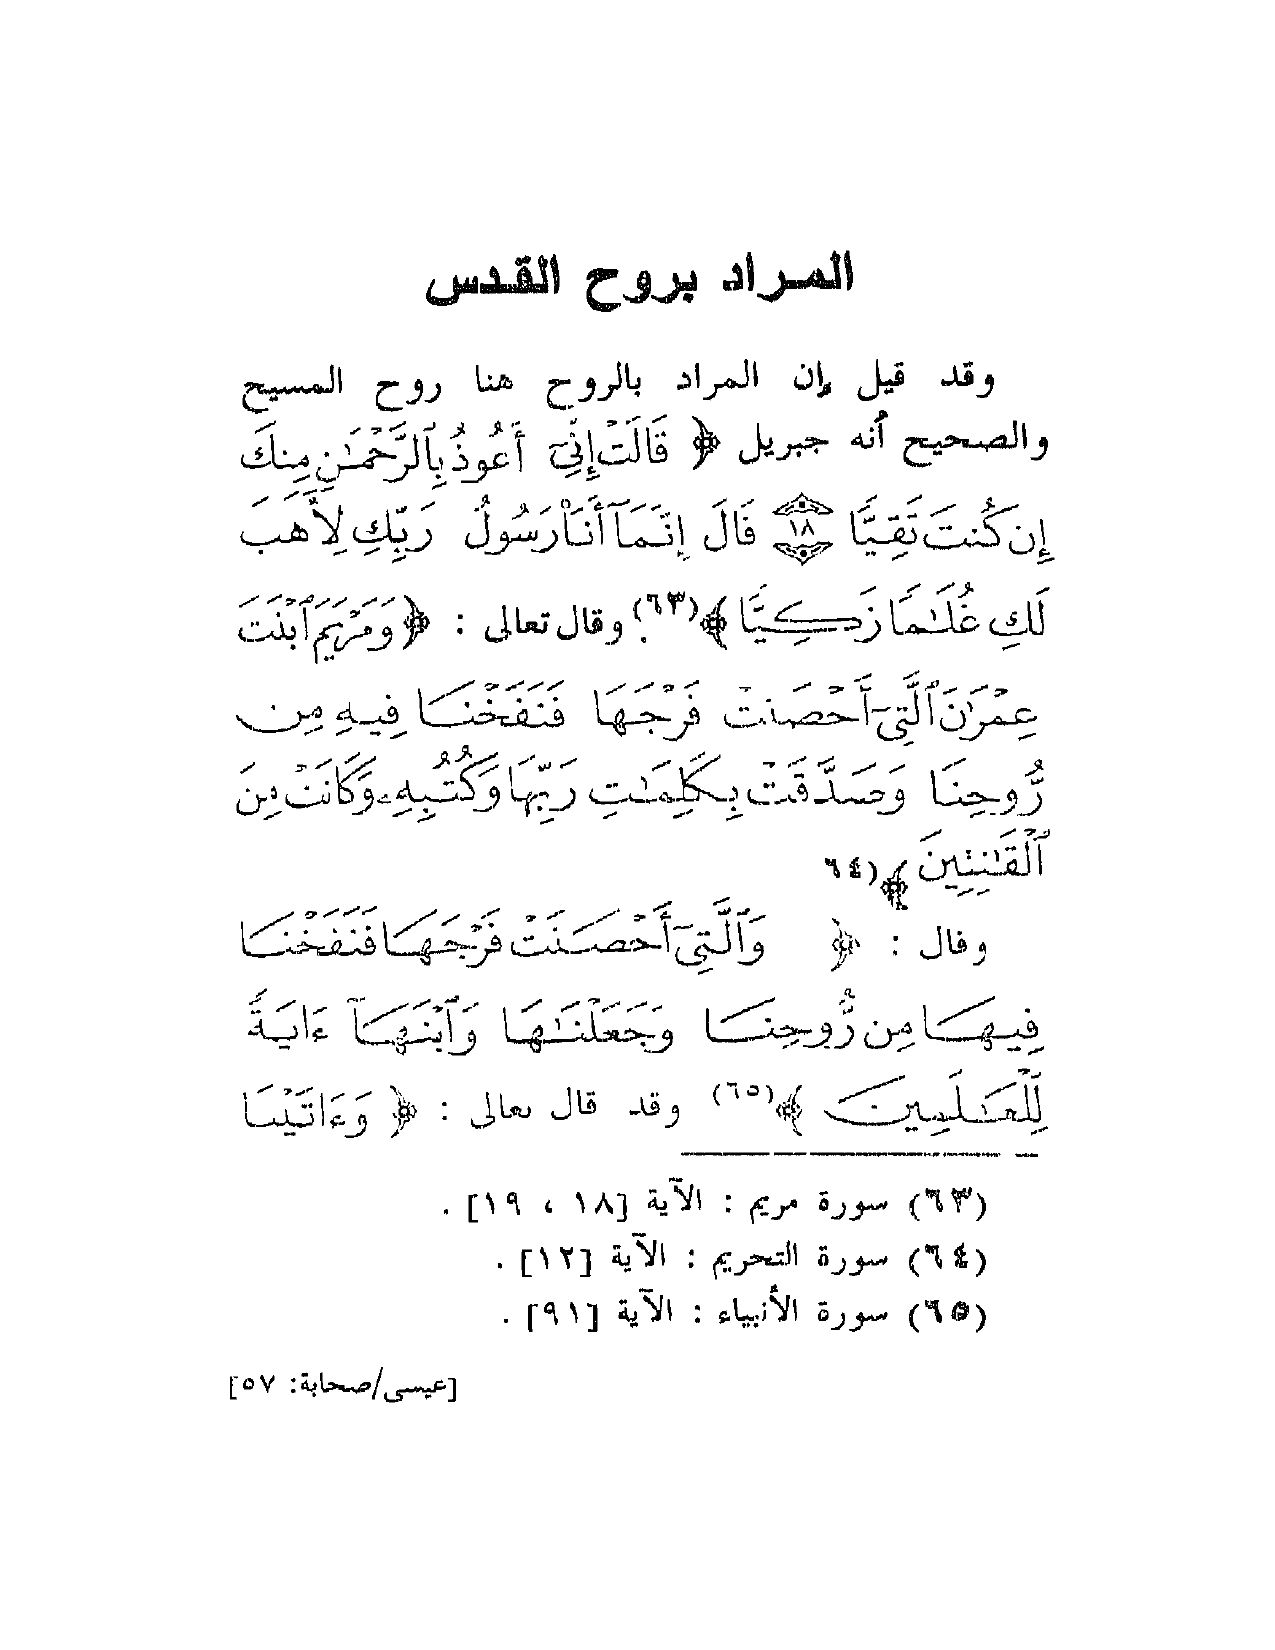 المراد بروح القدس
وقد قيل إن المراد بالروح هنا روح المسيح
والصحيح أنه جبريل ﴿ قَالَتْ إِنِّىٓ أَعُوذُ بِٱلرَّحْمَٰنِ مِنكَ
إِن كُنتَ تَقِيًّا ١٨ قَالَ إِنَّمَآ أَنَا۠ رَسُولُ رَبِّكِ لِأَهَبَ
لَكِ غُلَٰمًا زَكِيًّا ﴾(٦٣). وقال تعالى : ﴿ وَمَرْيَمَ ٱبْنَتَ
عِمْرَٰنَ ٱلَّتِىٓ أَحْصَنَتْ فَرْجَهَا فَنَفَخْنَا فِيهِ مِن
رُّوحِنَا وَصَدَّقَتْ بِكَلِمَٰتِ رَبِّهَا وَكُتُبِهِۦ وَكَانَتْ مِنَ
ٱلْقَٰنِتِينَ ﴾(٦٤
وقال : ﴿ وَٱلَّتِىٓ أَحْصَنَتْ فَرْجَهَا فَنَفَخْنَا
فِيهَا مِن رُّوحِنَا وَجَعَلْنَٰهَا وَٱبْنَهَآ ءَايَةً
لِّلْعَٰلَمِينَ ﴾(٦٥) وقد قال تعالى : ﴿ وَءَاتَيْنَا
(٦٣) سورة مريم : الآية [١٨ ، ١٩] .
(٦٤) سورة التحريم : الآية [١٢] .
(٦٥) سورة الأنبياء : الآية [٩١] .
[عيسى/صحابة: ٥٧]